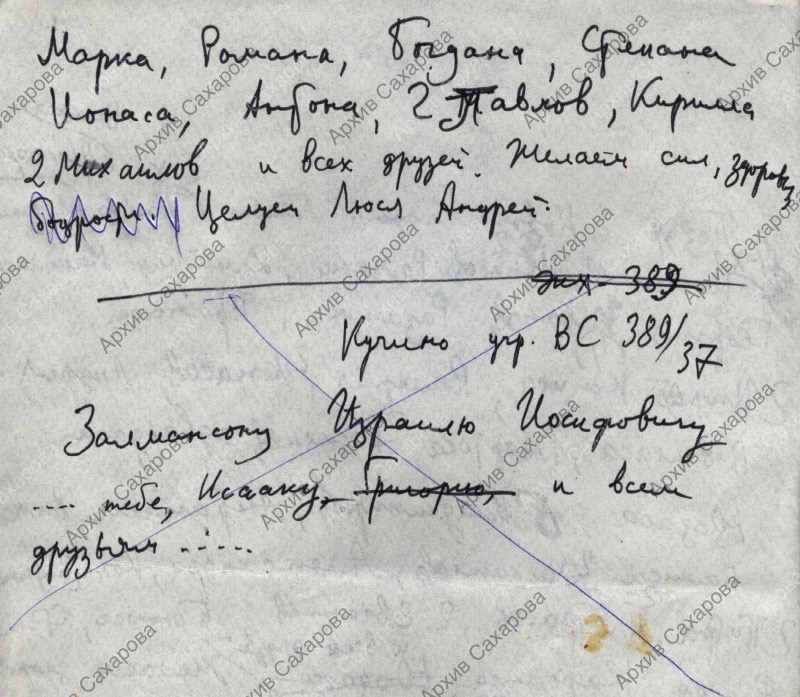 Марка, Романа, Богдана, Степана
Ионаса, Антона, 2 Павлов, Кирилла
2 Михаилов и всех друзей. Желаем сил, здоровья
бодрости. Целуем Люся Андрей.
389
Кучино учр. ВС 389/37
Залмансону Израилю Иосифовичу
.... тебе, Исааку, Григорию, и всем
друзьям ......
Архив Сахарова